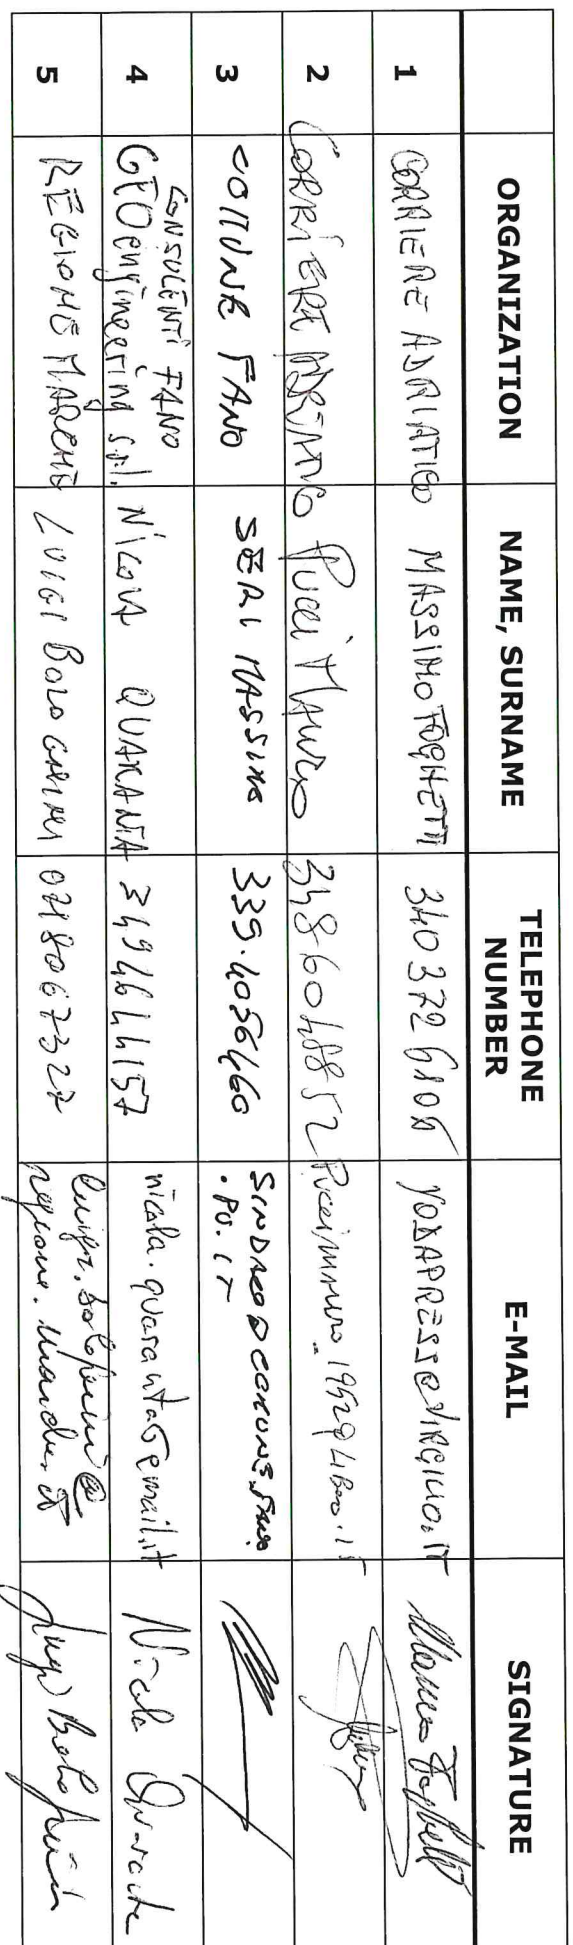 ORGANIZATION NAME, SURNAME TELEPHONE NUMBER E-MAIL SIGNATURE
1 CORRIERE ADRIATICO MASSIMO FOGHETTI 340 372 6106 VOXAPRESS@VIRGILIO.IT
2 CORRIERE ADRIATICO Pucci Maurizio 3486048852
3 COMUNE FANO SERI MASSIMO 339.4056460 SINDACO@COMUNE.FANO
.PU.IT
4 CONSULENTI FANO
GEOengineering s.r.l. NICOLA QUARANTA 3494644157 nicola.quaranta@email.it Nicola Quaranta
5 REGIONE MARCHE LUIGI 0718067327 luigi. @
regione.marche.it Luigi